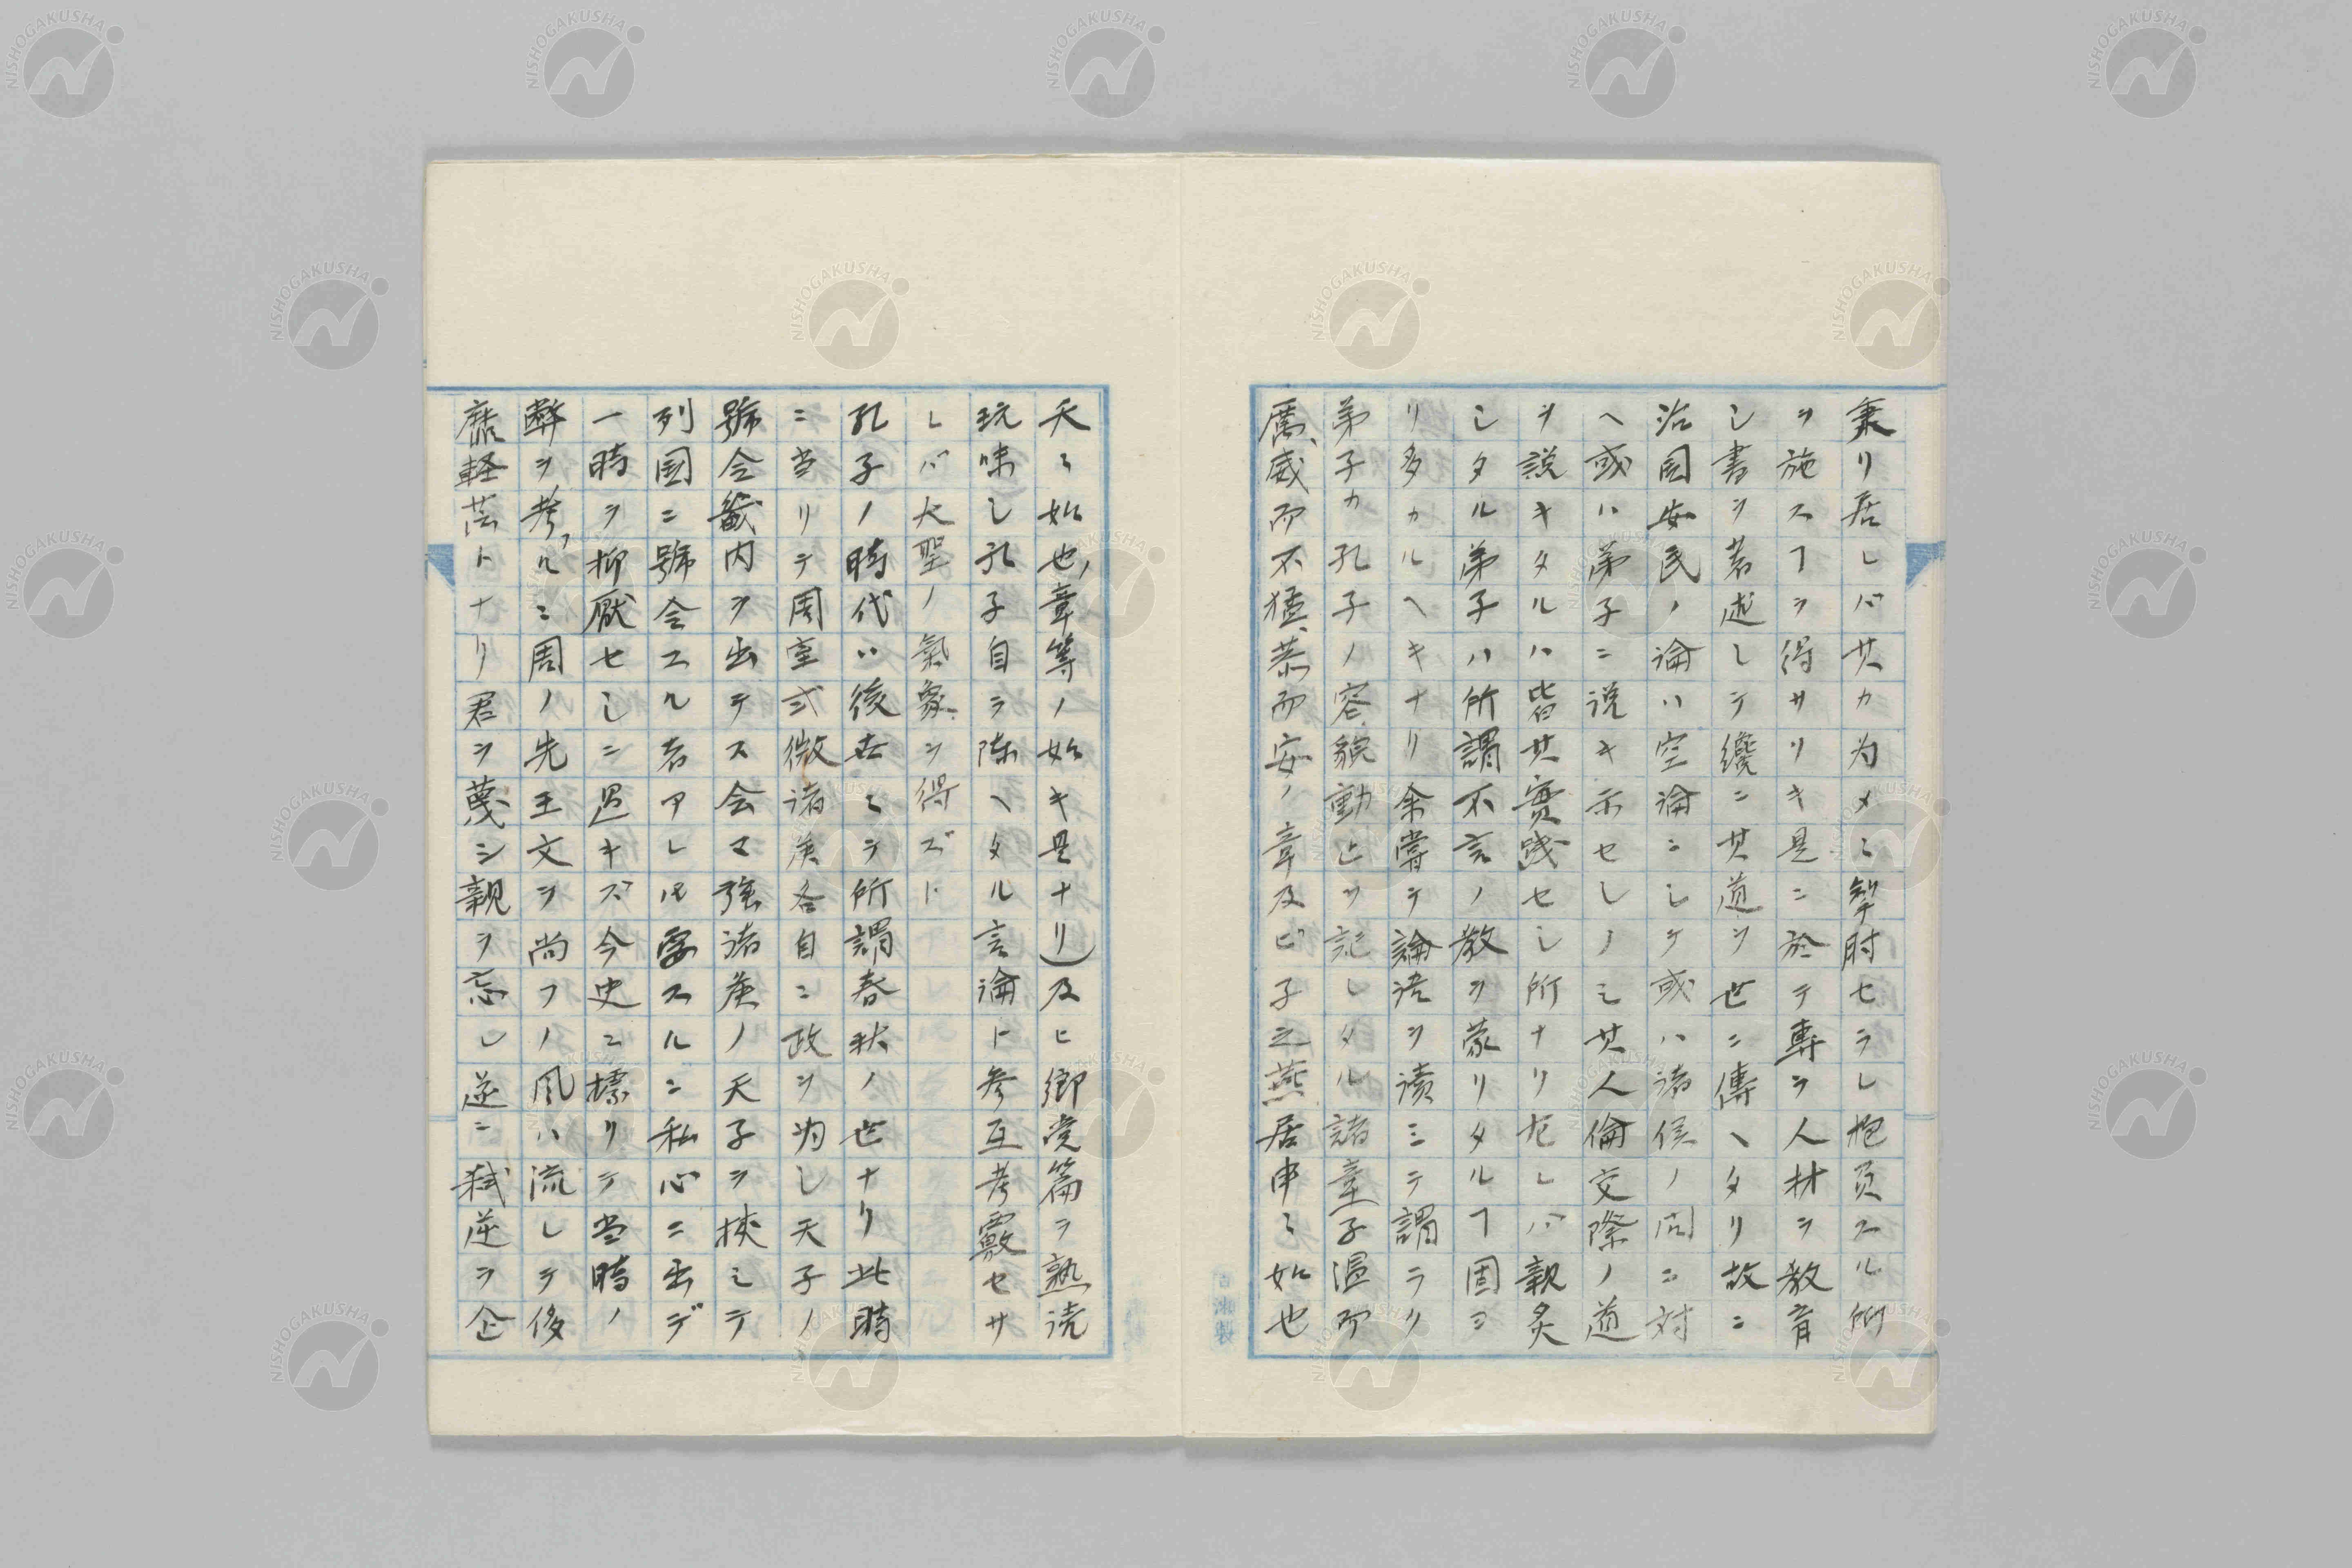 秉リ居レバ其カ為メニ掣肘セラレ抱負スル所
ヲ施スヿヲ得サリキ是ニ於テ専ラ人材ヲ教育
シ書ヲ著述シテ纔ニ其道ヲ世ニ傳ヘタリ故ニ
治国安民ノ論ハ空論ニシテ或ハ諸侯ノ問ニ対
ヘ或ハ弟子ニ説キ示セシノミ其人倫交際ノ道
ヲ説キタルハ皆其實践セシ所ナリ左レバ親炙
シタル弟子ハ所謂不言ノ教ヲ蒙リタルヿ固ヨ
リ多カルヘキナリ余嘗テ論语ヲ读ミテ謂ラク
弟子カ孔子ノ容貌動止ヲ記シタル諸章子温而
厲、威而不猛、恭而安ノ章及ビ子之燕居申ミ如也
夭ミ如也、章等ノ如キ是ナリ)及ヒ郷党篇ヲ熟读
玩味シ孔子自ラ陳ヘタル言論ト参互考覈セサ
レバ大聖ノ氣象ヲ得ズト
孔子ノ時代ハ後世ニテ所謂春秋ノ世ナリ此時
ニ当リテ周室式微诸侯各自ニ政ヲ為シ天子ノ
號令畿内ヲ出テス会マ強诸侯ノ天子ヲ挾ミテ
列国ニ號令スル者アレルスルニ私心ニ出デ
一時ヲ抑厭セシニ過キズ今史ニ據リテ当時ノ
弊ヲ考フルニ周ノ先王文ヲ尚フノ風ハ流レテ侈
靡軽薄トナリ君ヲ蔑シ親ヲ忘レ遂ニ弑逆ヲ企
NISHOGAKUSHA